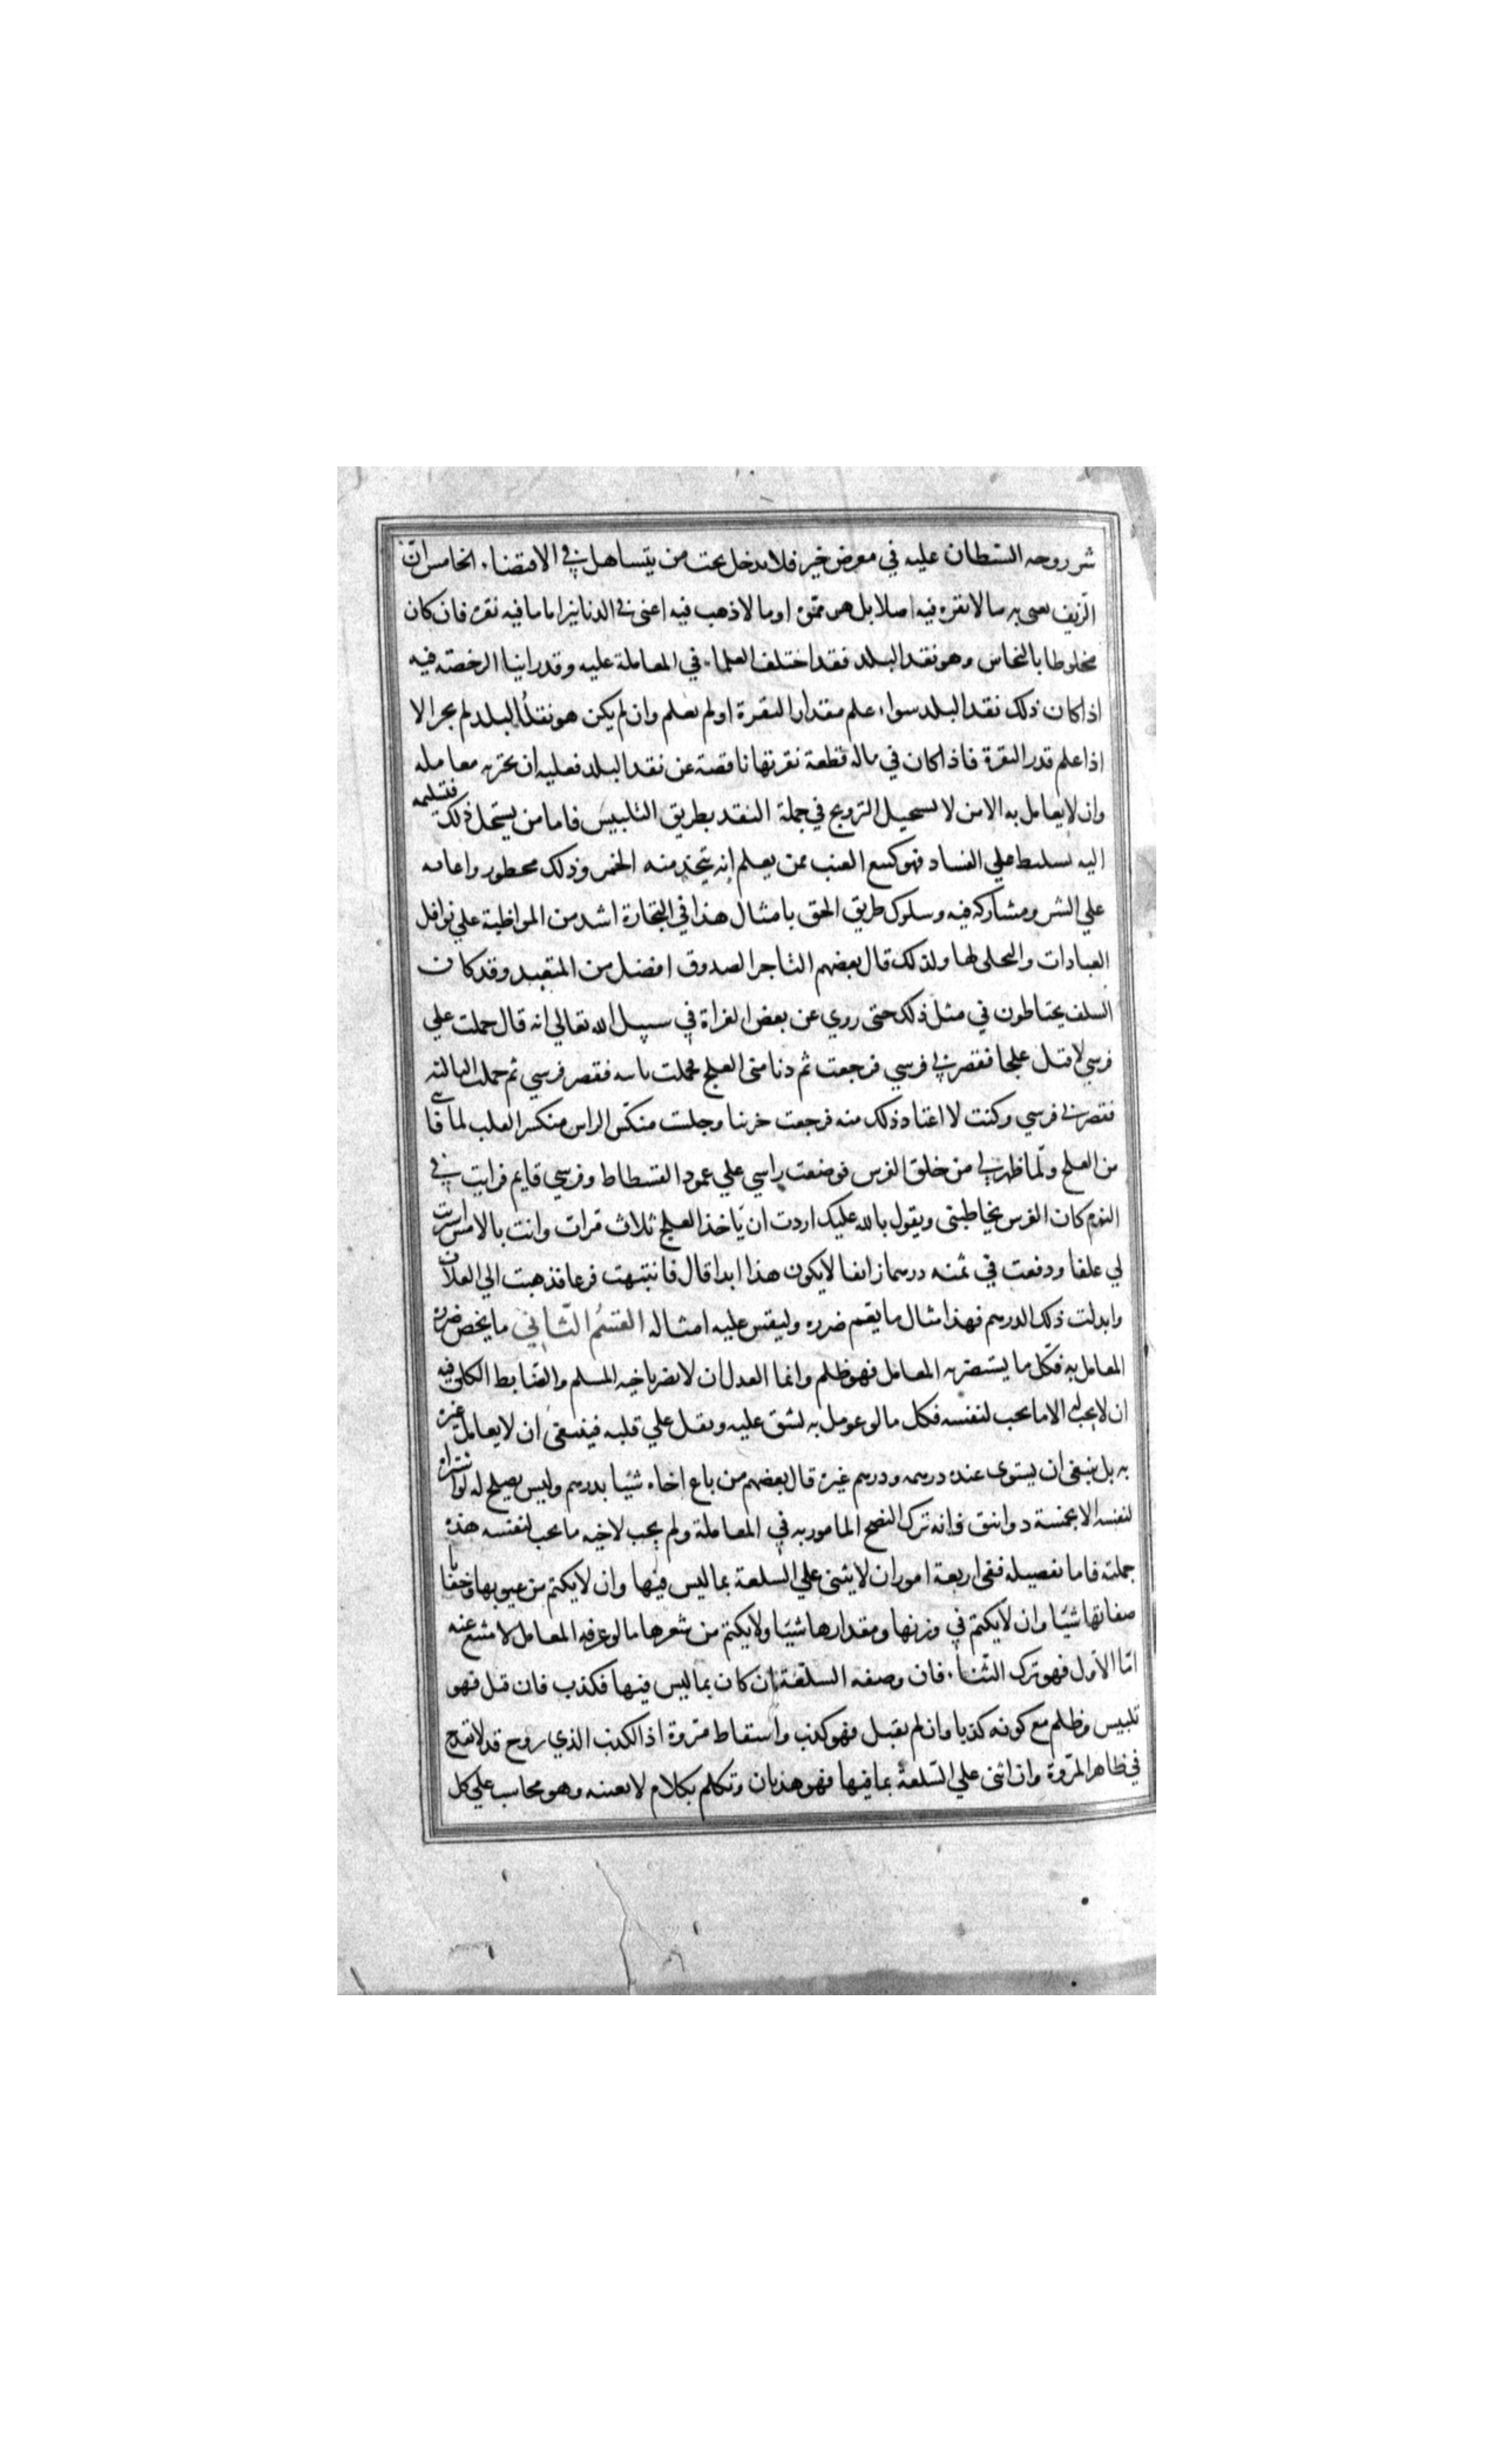 شر روجه الشيطان عليه في معرض خير فلا يدخل تحت من يتساهل في الاقتضاء. الخامس ان
الزيف نعني به ما لا نقره فيه اصلا بل هو مموه او ما لا ذهب فيه اعني في الدنانير اما ما فيه نقره فان كان
مخلوطا بالنحاس وهو نقد البلد فقد اختلف العلماء في المعاملة عليه وقد راينا الرخصة فيه
اذا كان ذلك نقد البلد سواء علم مقدار النقرة او لم يعلم وان لم يكن هو نقد البلد لم يجز الا
اذا علم قدر النقرة فاذا كان في ماله قطعة نقرتها ناقصة عن نقد البلد فعليه ان يخبر به معامله
وان لا يعامل به الا من لا يستحيل الترويج في جملة النقد بطريق التلبيس فاما من يستحل ذلك فتسليمه
اليه تسليط علي الفساد فهو كبيع العنب ممن يعلم انه يتخذ منه الخمر وذلك محظور واعانه
علي الشر ومشاركه فيه وسلوك طريق الحق بامثال هذا في التجارة اشد من المواظبة علي نوافل
العبادات والتخلي لها ولذلك قال بعضهم التاجر الصدوق افضل من المتعبد وقد كان
السلف يحتاطون في مثل ذلك حتى روي عن بعض الغزاة في سبيل الله تعالي انه قال حملت علي
فرسي لاقتل علجا فقصر بي فرسي فرجعت ثم دنا مني العلج فحملت ثانيه فقصر فرسي ثم حملت الثالثه
فقصر بي فرسي وكنت لا اعتاد ذلك منه فرجعت حزينا وجلست منكس الراس منكسر القلب لما فاتني
من العلج ولما ظهر لي من خلق الفرس فوضعت راسي علي عمود الفسطاط وفرسي قايم فرايت في
النوم كان الفرس يخاطبني ويقول بالله عليك اردت ان تاخذ العلج ثلاث مرات وانت بالامس اشتريت
لي علفا ودفعت في ثمنه درهما زايفا لا يكون هذا ابدا قال فانتبهت فزعا فذهبت الي العلاف
وابدلت ذلك الدرهم فهذا مثال ما يعم ضرره وليقس عليه امثاله القسم الثاني ما يخص ضرره
المعامل به فكل ما يستضر به المعامل فهو ظلم وانما العدل ان لا يضر باخيه المسلم والضابط الكلي فيه
ان لا يحب له الا ما يحب لنفسه فكل ما لو عومل به لشق عليه وثقل علي قلبه فينبغي ان لا يعامل غيره
به بل ينبغي ان يستوى عنده درهمه ودرهم غيره قال بعضهم من باع اخاه شيئا بدرهم وليس يصلح له لو اشتراه
لنفسه الا بخمسة دوانق فانه ترك النصح المامور به في المعاملة ولم يحب لاخيه ما يحب لنفسه هذه
جملته فاما تفصيله ففي اربعة امور ان لا يثني علي السلعة بما ليس فيها وان لا يكتم من عيوبها وخفايا
صفاتها شيئا وان لا يكتم في وزنها ومقدارها شيئا ولا يكتم من سعرها ما لو عرفه المعامل لامتنع عنه
اما الاول فهو ترك الثناء. فان وصفه السلعة ان كان بما ليس فيها فكذب فان قبل فهو
تلبيس وظلم مع كونه كذبا وان لم يقبل فهو كذب واسقاط مروة اذ الكذب الذي روح قد لا يقدح
في ظاهر المروة وان اثنى علي السلعة بما فيها فهو هذيان وتكلم بكلام لا يعنيه وهو محاسب علي كل